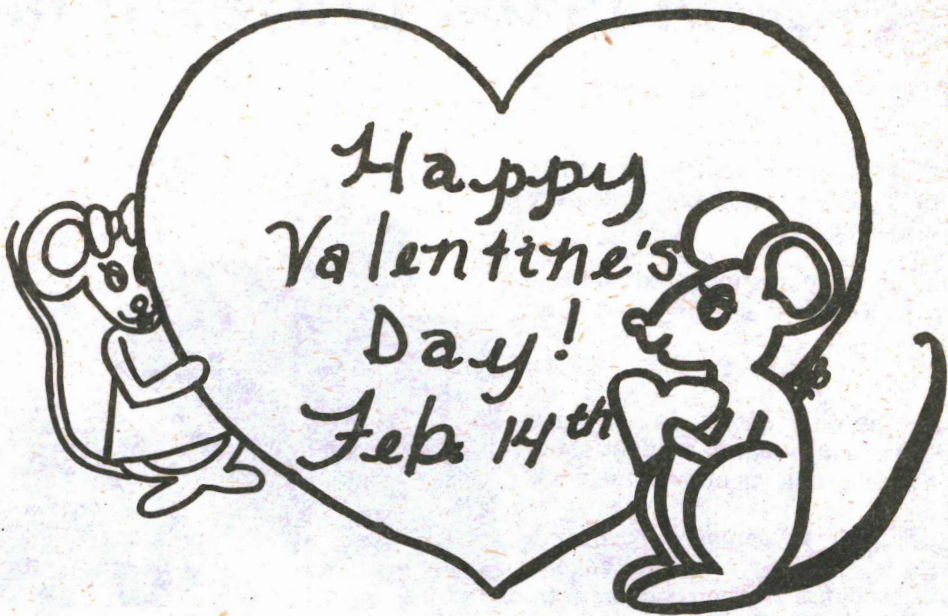 Happy
Valentine's
Day!
Feb. 14th